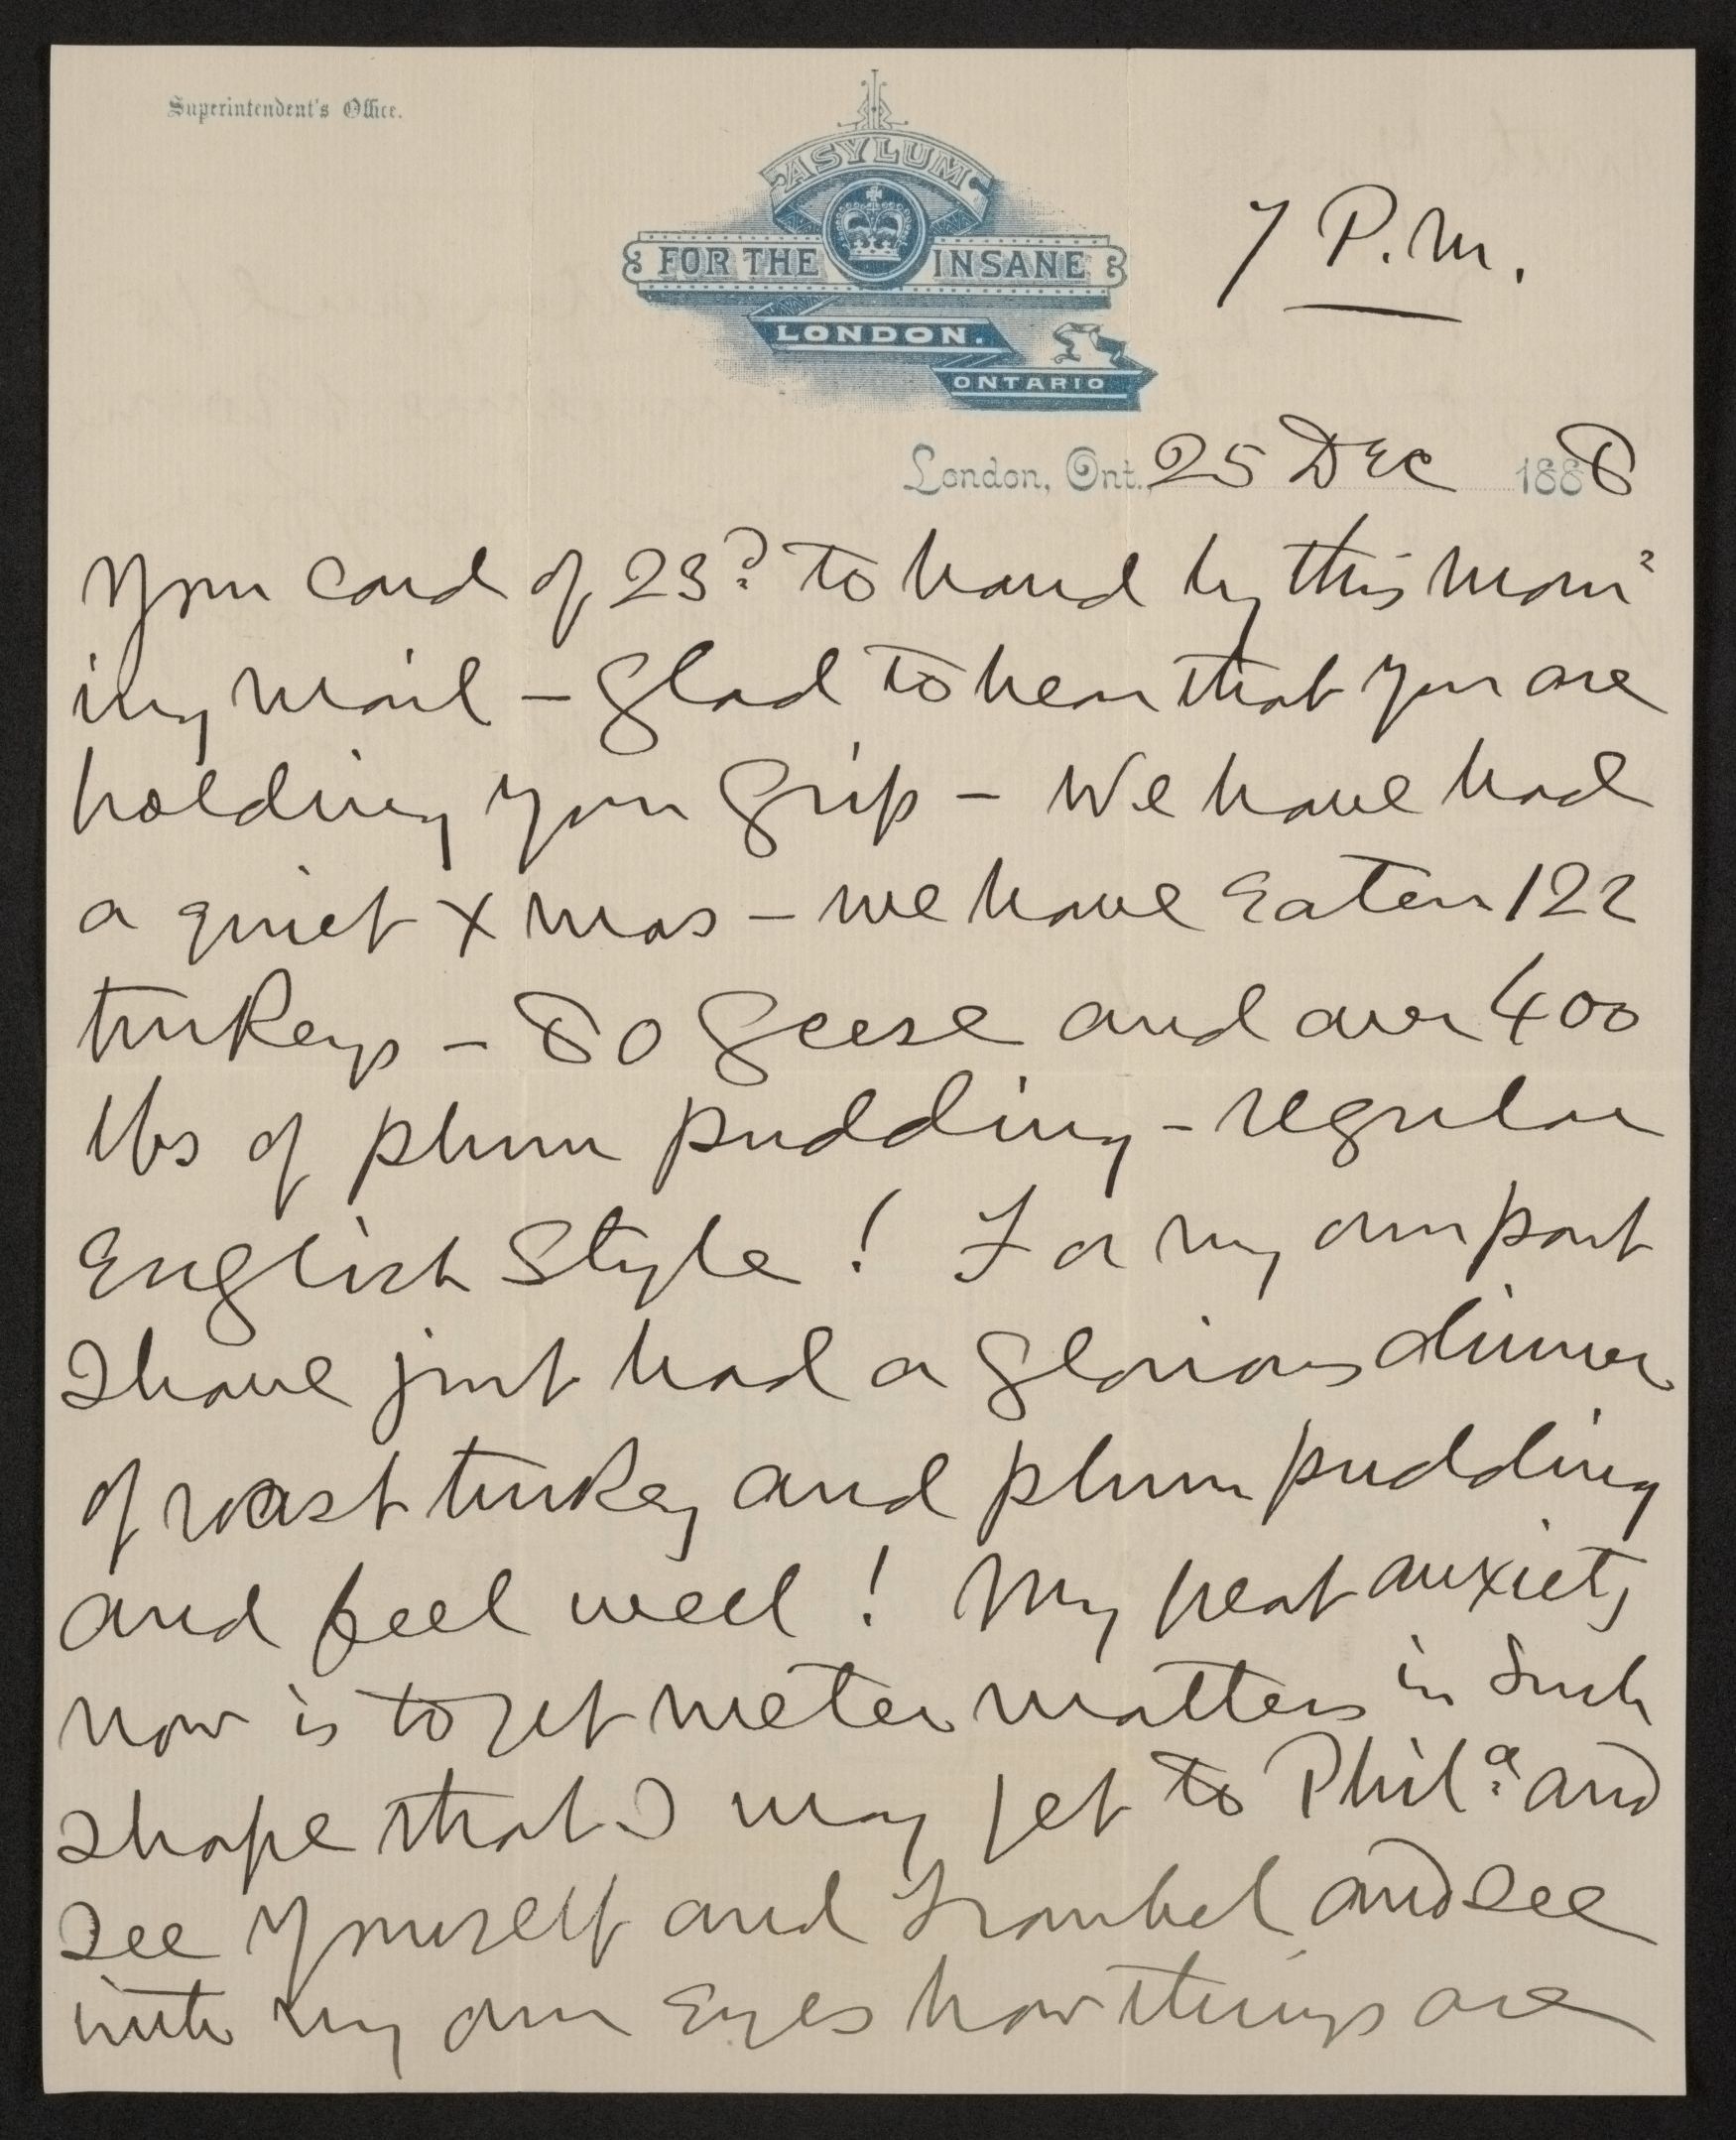 Superintendent's Office.
ASYLUM
FOR THE INSANE
LONDON.
ONTARIO
7 P.M.
London, Ont., 25 Dec 1888
Your card of 23d to hand by this morn-
ing mail — glad to hear that you are
holding your grip — We have had
a quiet Xmas — we have eaten 122
turkeys — 80 geese and over 400
lbs of plum pudding — regular
English style! For my own part
I have just had a glorious dinner
of roast turkey and plum pudding
and feel well! My great anxiety
now is to get meter matters in such
shape that I may get to Phila and
see yourself and Traubel and see
with my own eyes how things are